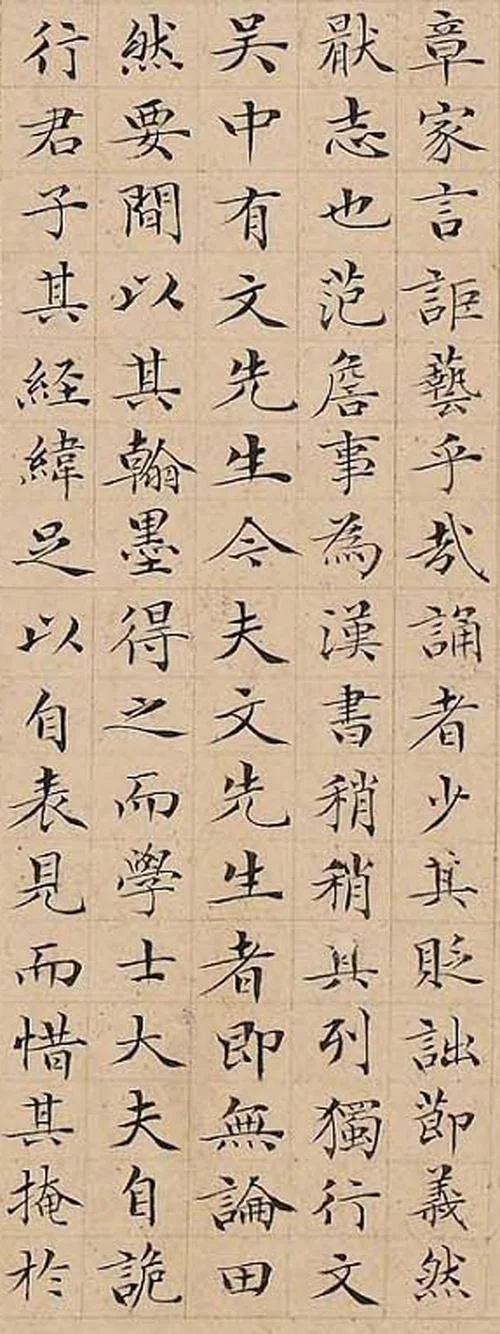 章家言詎藝乎哉誦者少其貶詘節義然
猒志也范詹事為漢書稍稍具列獨行文
吴中有文先生今夫文先生者即無論田
然要間以其翰墨得之而學士大夫自詭
行君子其経緯足以自表見而惜其掩於